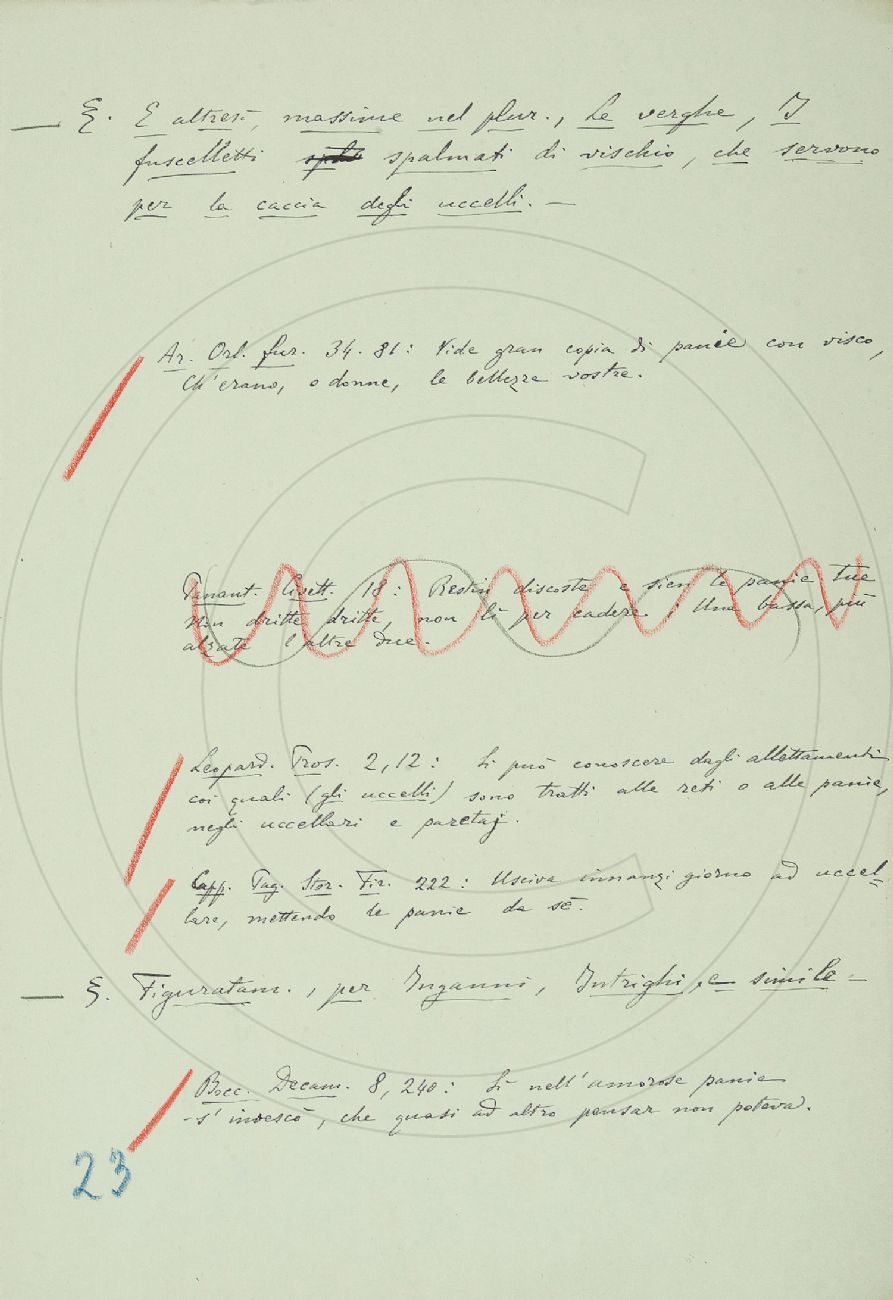 — §. E altresì, massime nel plur., Le verghe, I
fuscelletti spalmati di vischio, che servono
per la caccia degli uccelli. —
Ar. Orl. fur. 34. 81: Vide gran copia di panie con visco,
Ch'erano, o donne, le bellezze vostre.
18: Restin discoste e sien le panie tue
Non dritte dritte, non lì per cadere; Una bassa, più
alzate l'altre due.
Leopard. Pros. 2, 12: Si può conoscere dagli allettamenti
coi quali (gli uccelli) sono tratti alle reti o alle panie,
negli uccellari e paretaj.
Capp. Pag. Stor. Fir. 222: Usciva innanzi giorno ad uccel-
lare, mettendo le panie da sè.
— §. Figuratam., per Inganni, Intrighi, e simile —
Bocc. Decam. 8, 240: Sì nell'amorose panie
s'invescò, che quasi ad altro pensar non poteva.
23